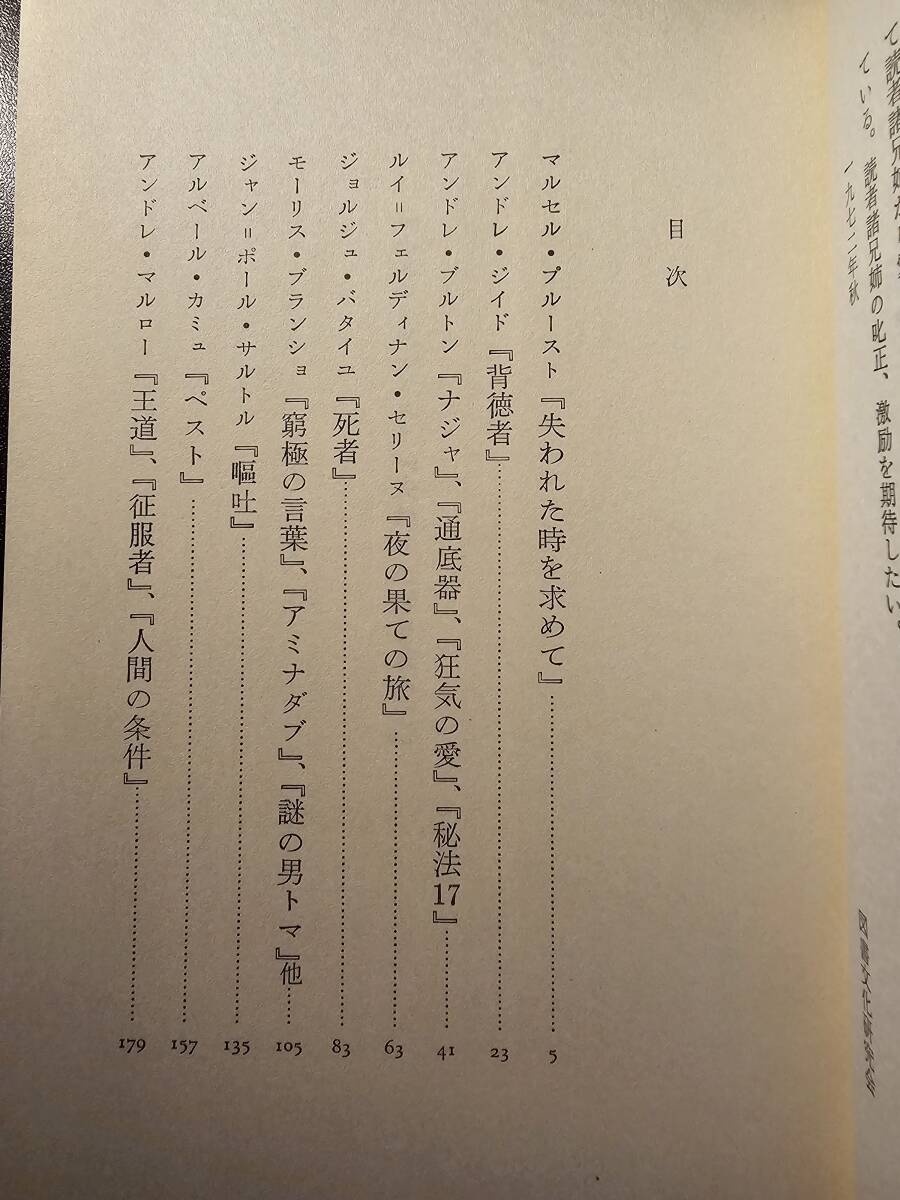 読者諸兄姉
ている。読者諸兄姉の叱正、激励を期待したい。
一九七二年秋
目次
マルセル・プルースト『失われた時を求めて』 5
アンドレ・ジイド『背徳者』 23
アンドレ・ブルトン『ナジャ』、『通底器』、『狂気の愛』、『秘法17』 41
ルイ=フェルディナン・セリーヌ『夜の果ての旅』 63
ジョルジュ・バタイユ『死者』 83
モーリス・ブランショ『窮極の言葉』、『アミナダブ』、『謎の男トマ』他 105
ジャン=ポール・サルトル『嘔吐』 135
アルベール・カミュ『ペスト』 157
アンドレ・マルロー『王道』、『征服者』、『人間の条件』 179